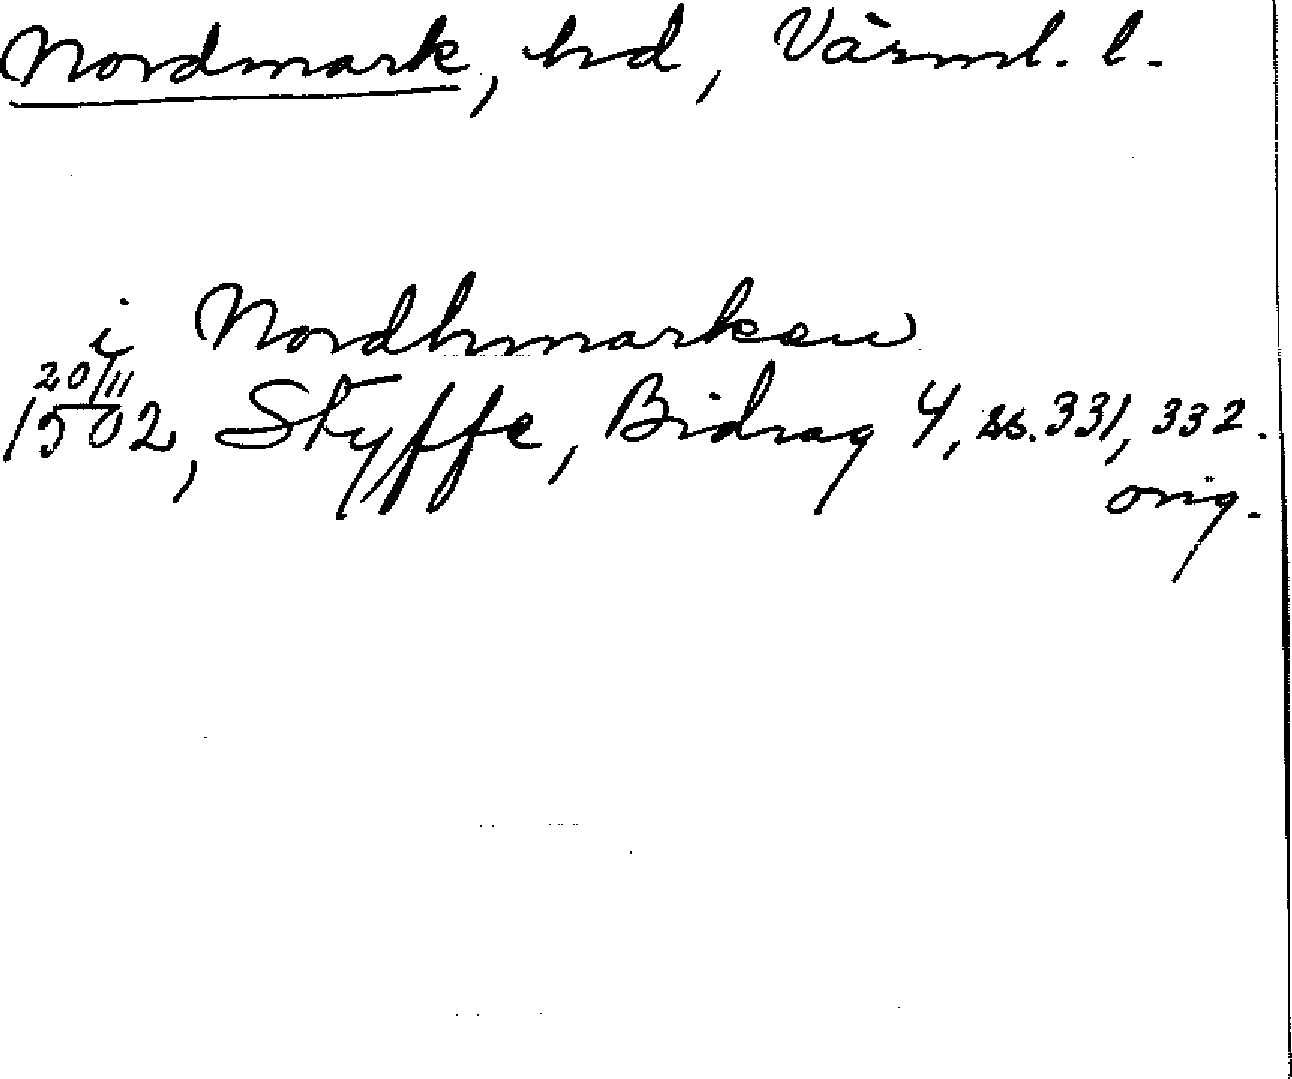 Nordmark, hd, Värml. l.
i Nordhmarken
20/11
1502, Styffe, Bidrag 4, ss. 331, 332.
orig.